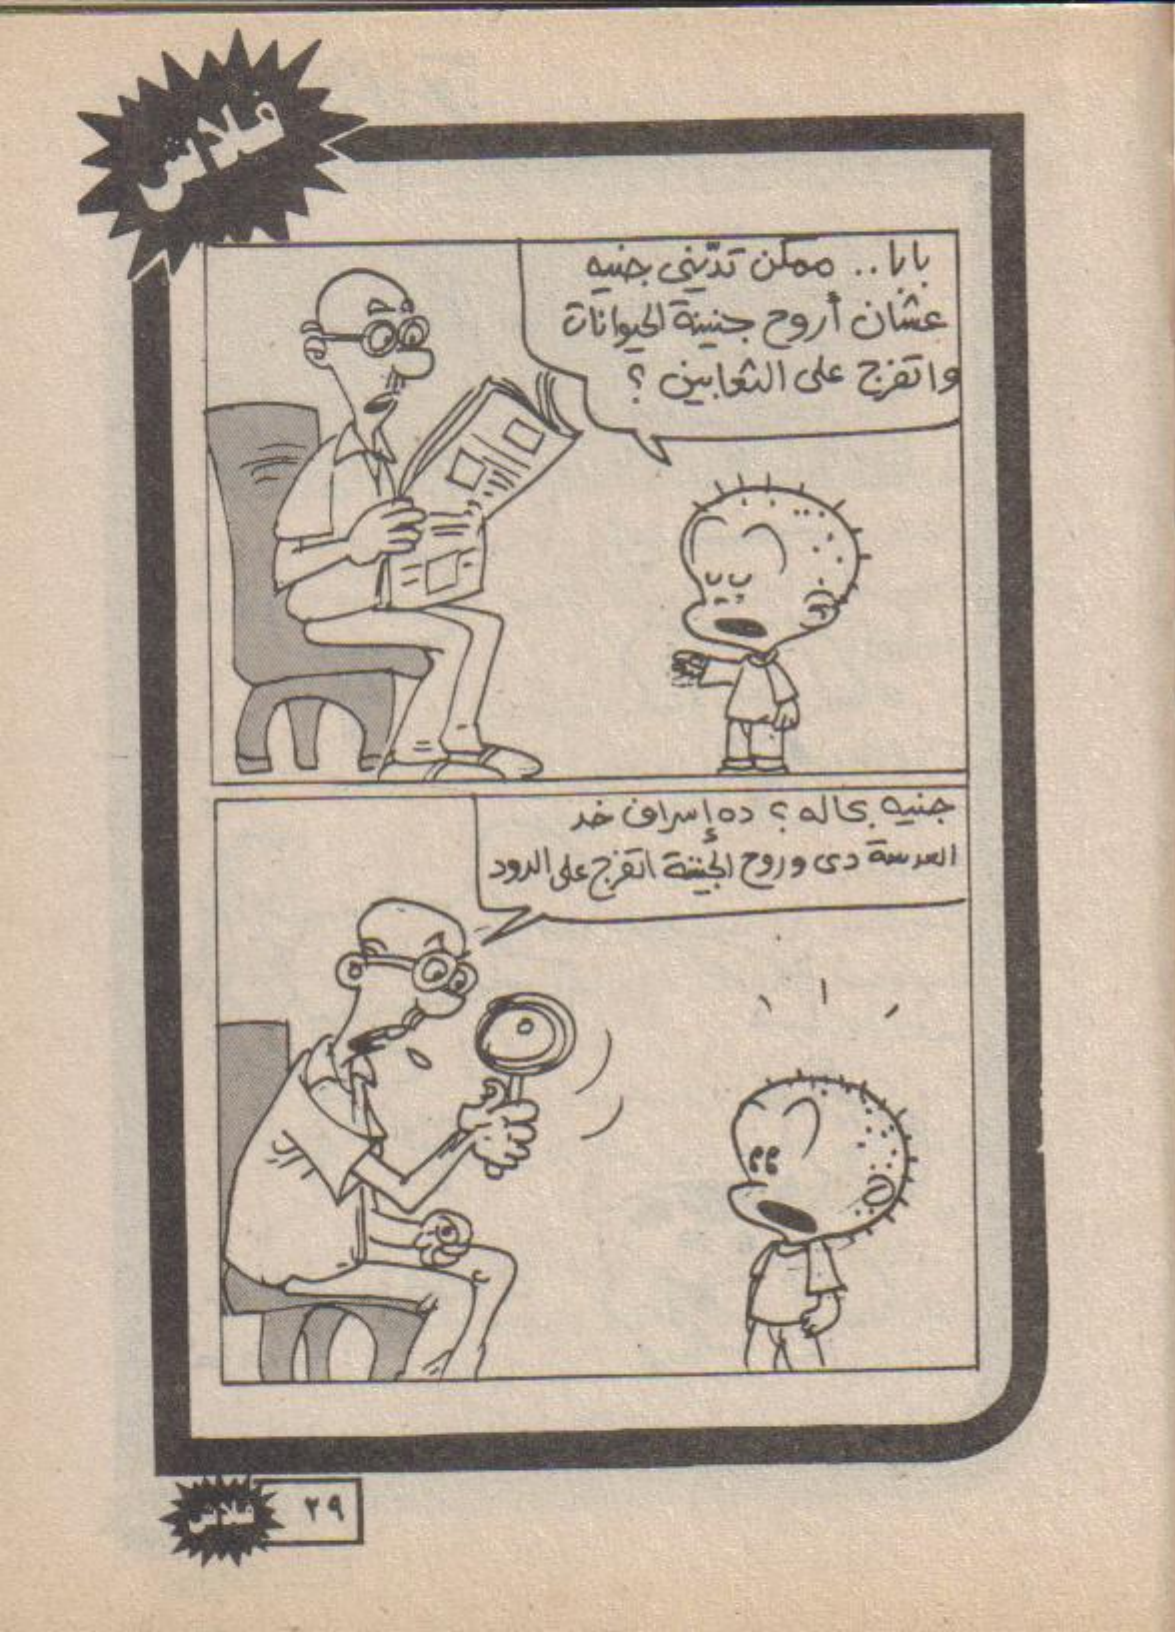 فلاش
بابا.. ممكن تدّيني جنيه
عشان أروح جنينة الحيوانات
واتفرج على الثعابين ؟
جنيه بحاله ؟ ده إسراف خد
العدسة دى وروح الجنينة اتفرج على الدود
٢٩
فلاش